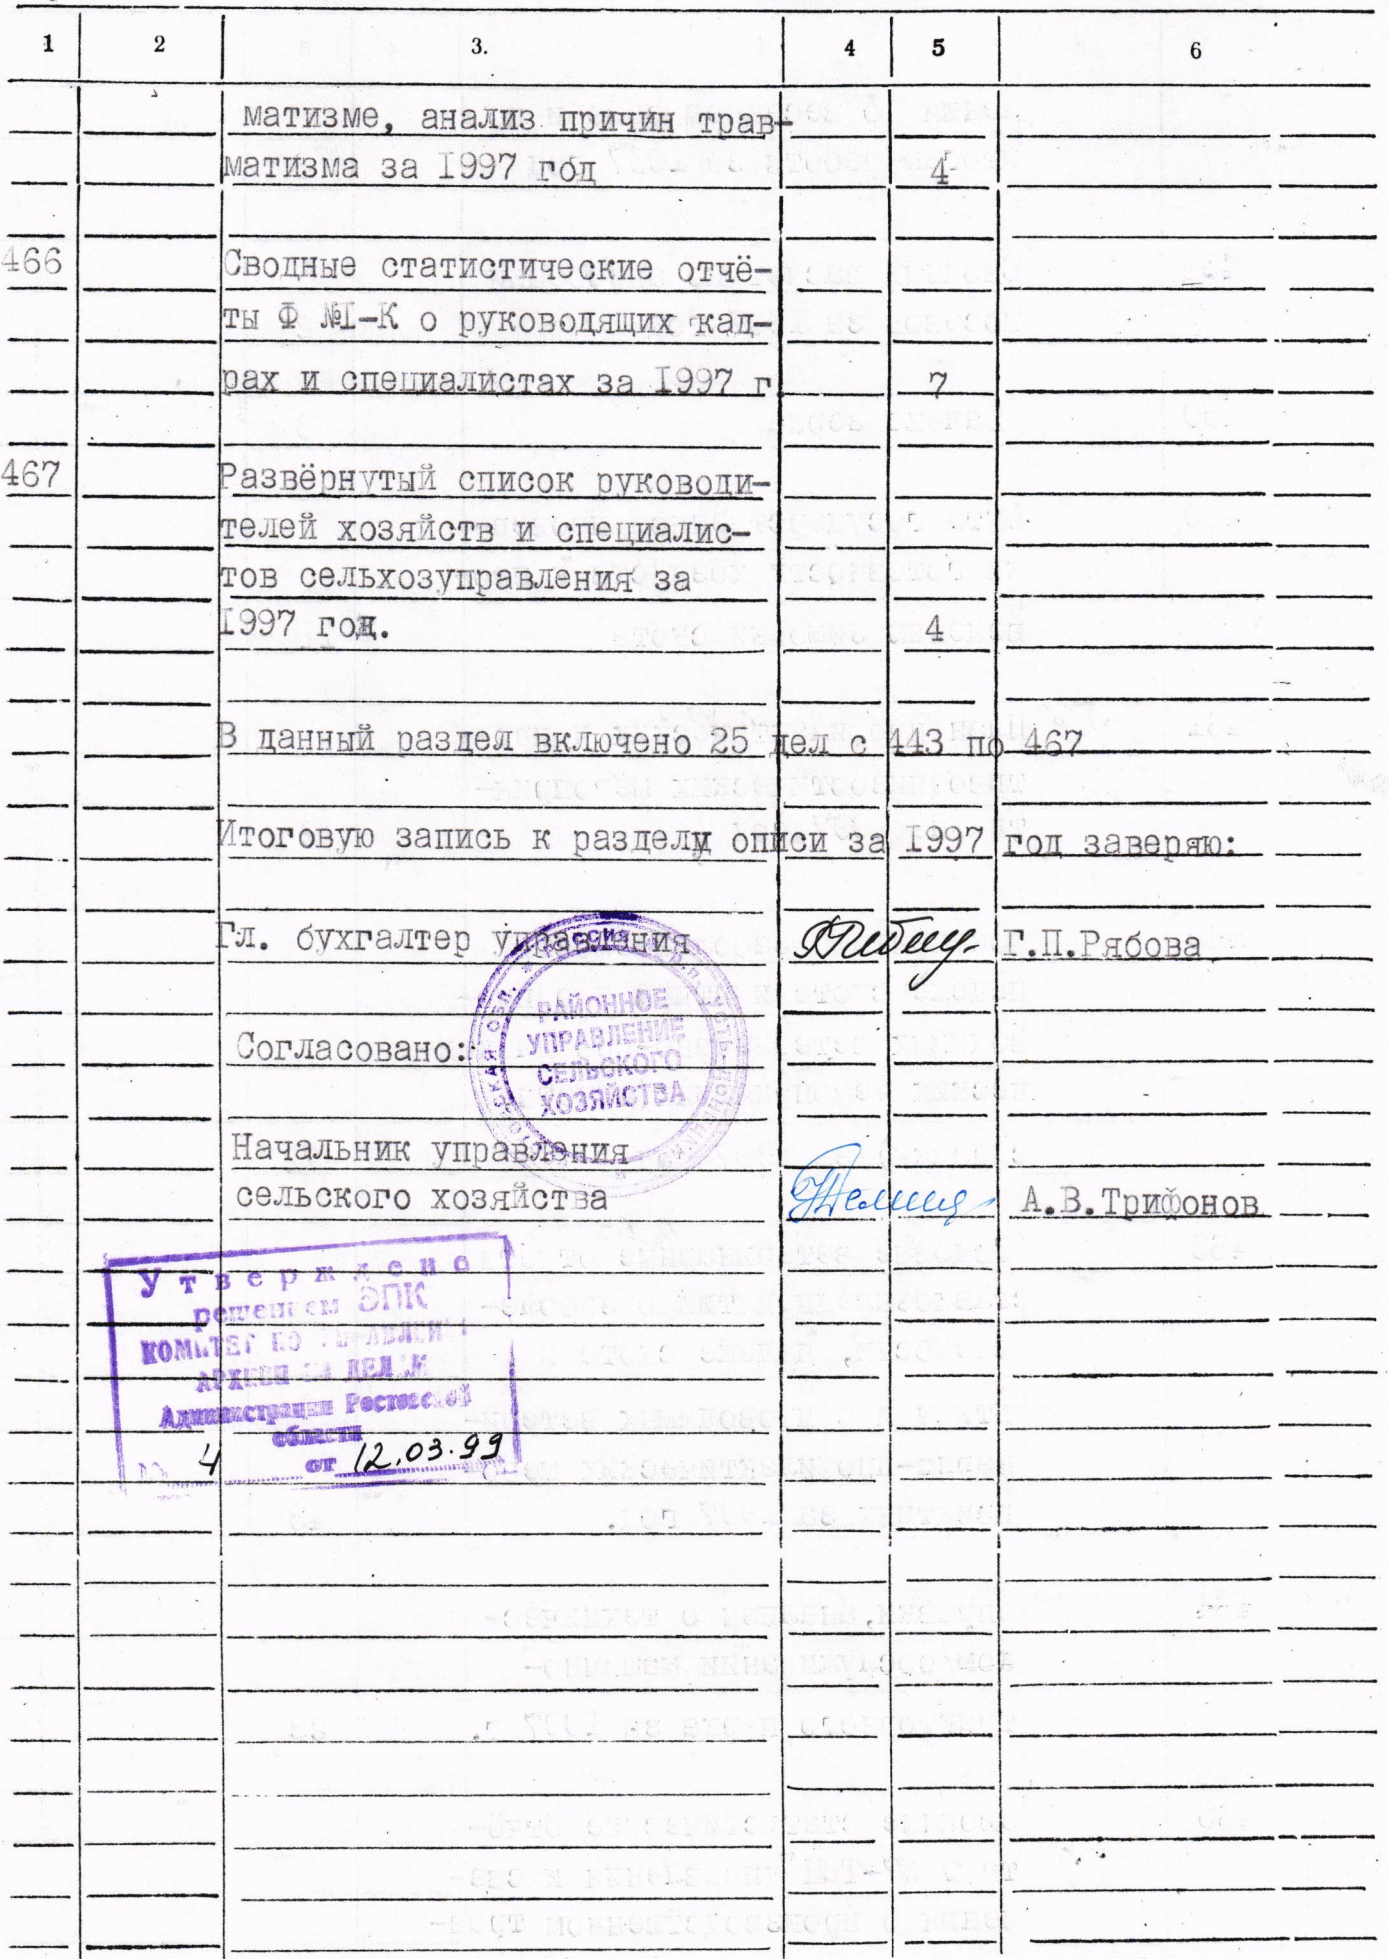 1 2 3. 4 5 6
матизме, анализ причин трав-
матизма за 1997 год 4
466 Сводные статистические отчё-
ты Ф №1-К о руководящих кад-
рах и специалистах за 1997 г 7
467 Развёрнутый список руководи-
телей хозяйств и специалис-
тов сельхозуправления за
1997 год. 4
В данный раздел включено 25 дел с 443 по 467
Итоговую запись к разделу описи за 1997 год заверяю:
Гл. бухгалтер управления Г.П.Рябова
РАЙОННОЕ
УПРАВЛЕНИЕ
СЕЛЬСКОГО
ХОЗЯЙСТВА
Согласовано:
Начальник управления
сельского хозяйства А.В.Трифонов
Утверждено
решением ЭПК
КОМИТЕТ ПО
АРХИВНЫМ ДЕЛАМ
Администрации Ростовской
области
№ 4 от 12.03.99